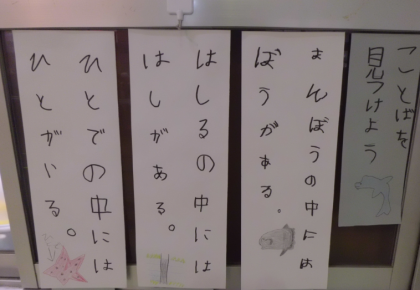 ことばを
見つけよう
まんぼうの中には
ぼうがある。
はしるの中には
はしがある。
ひとでの中には
ひとがいる。